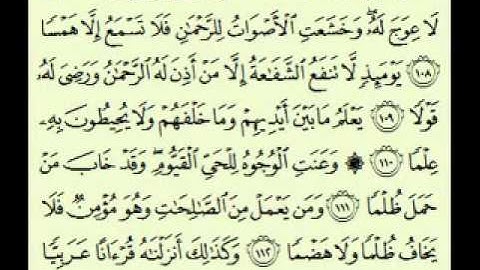 لَا عِوَجَ لَهُۥۖ وَخَشَعَتِ ٱلْأَصْوَاتُ لِلرَّحْمَٰنِ فَلَا تَسْمَعُ إِلَّا هَمْسًا
١٠٨ يَوْمَئِذٍ لَّا تَنفَعُ ٱلشَّفَٰعَةُ إِلَّا مَنْ أَذِنَ لَهُ ٱلرَّحْمَٰنُ وَرَضِىَ لَهُۥ
قَوْلًا ١٠٩ يَعْلَمُ مَا بَيْنَ أَيْدِيهِمْ وَمَا خَلْفَهُمْ وَلَا يُحِيطُونَ بِهِۦ
عِلْمًا ١١٠ ۞ وَعَنَتِ ٱلْوُجُوهُ لِلْحَىِّ ٱلْقَيُّومِۖ وَقَدْ خَابَ مَنْ
حَمَلَ ظُلْمًا ١١١ وَمَن يَعْمَلْ مِنَ ٱلصَّٰلِحَٰتِ وَهُوَ مُؤْمِنٌ فَلَا
يَخَافُ ظُلْمًا وَلَا هَضْمًا ١١٢ وَكَذَٰلِكَ أَنزَلْنَٰهُ قُرْءَانًا عَرَبِيًّا